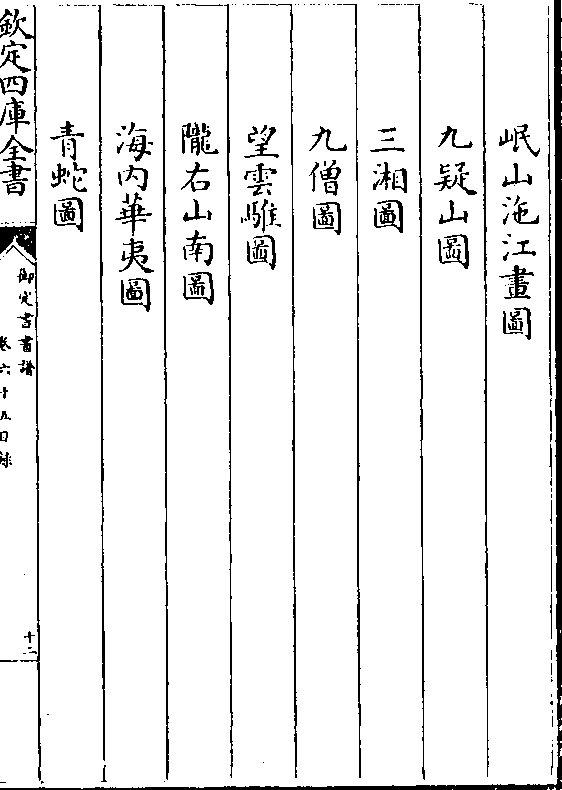 岷山沲江畫圖
九疑山圖
三湘圖
九僧圖
望雲騅圖
隴右山南圖
海内華夷圖
青蛇圖
欽定四庫全書
御定書畫譜
卷六十五目録
十二